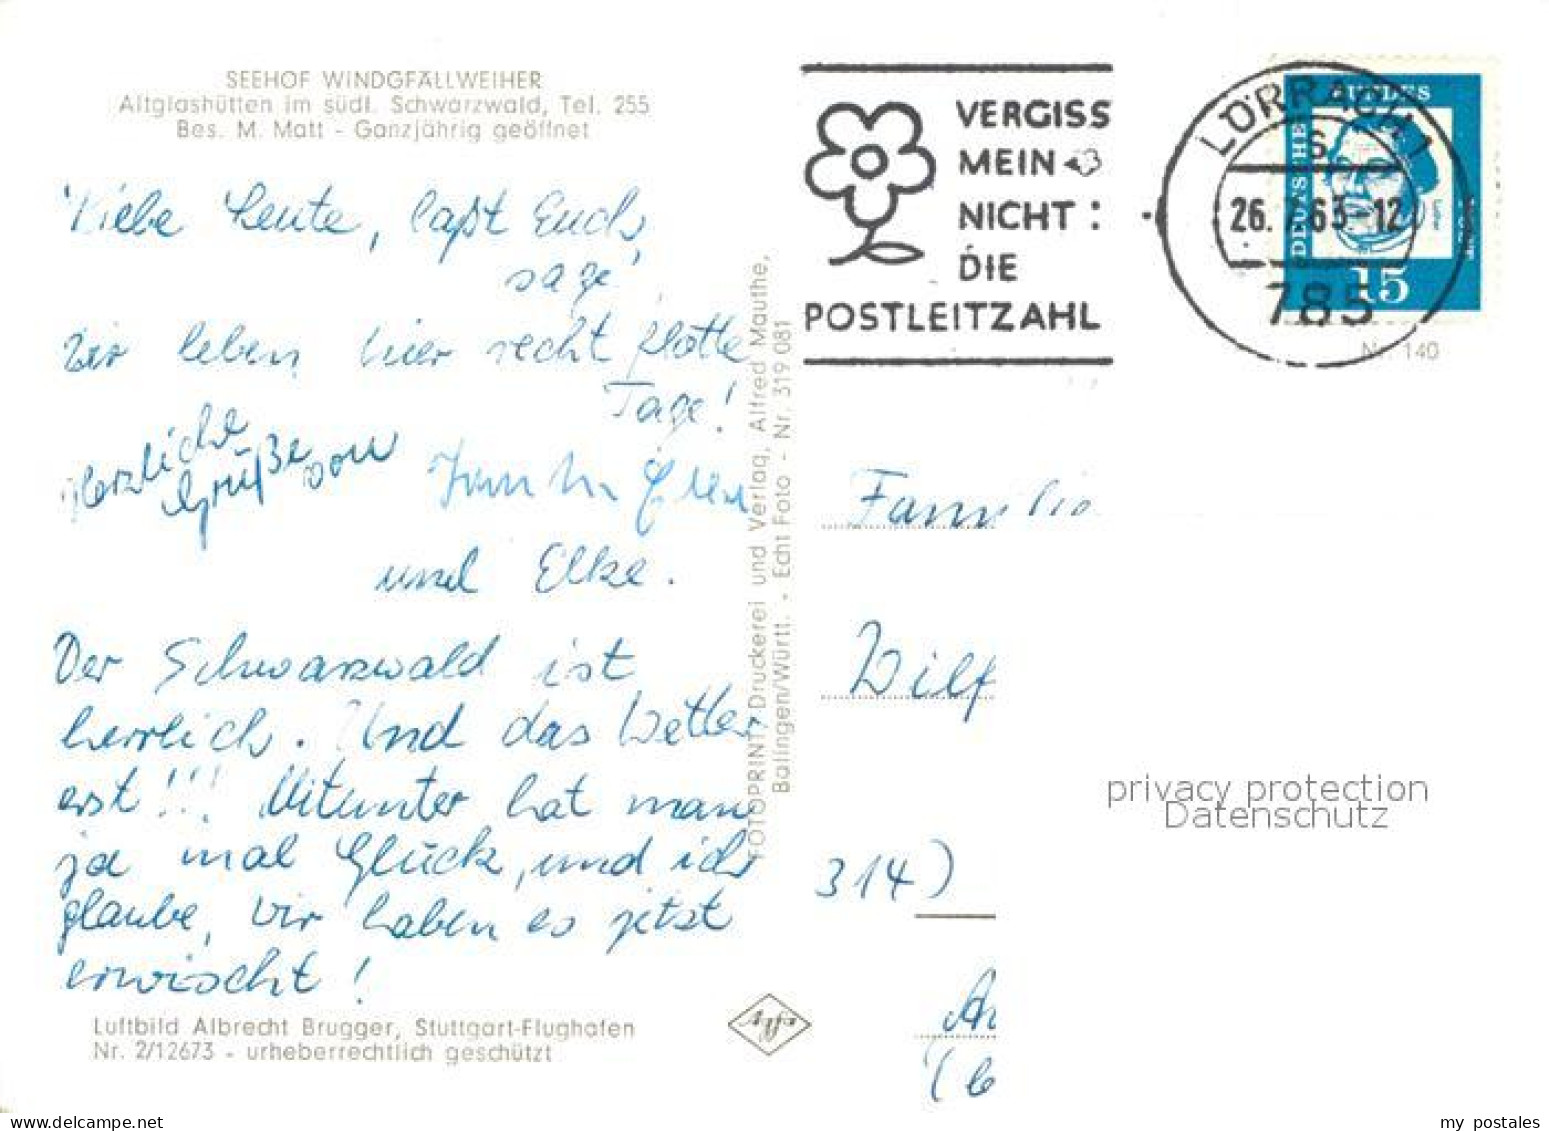 SEEHOF WINDGFÄLLWEIHER
Altglashütten im südl. Schwarzwald, Tel. 255
Bes. M. Matt - Ganzjährig geöffnet
Liebe Leute, laßt Euch
sagen
Wir leben hier recht flotte
Tage!
Herzliche
Grüße von
und Elke.
Der Schwarzwald ist
herrlich. Und das Wetter
erst!!! Mitunter hat man
ja mal Glück, und ich
glaube, wir haben es jetzt
erwischt!
Luftbild Albrecht Brugger, Stuttgart-Flughafen
Nr. 2/12673 - urheberrechtlich geschützt
FOTOPRINT, Druckerei und Verlag, Alfred Mauthe,
Balingen/Württ. - Echt Foto - Nr. 319 081
VERGISS
MEIN
NICHT:
DIE
POSTLEITZAHL
LÖRRACH 1
s
26. 7.63-12
785
DEUTSCHE BUNDESPOST
15
Nr. 140
Familie
Wilf
314)
An
privacy protection
Datenschutz
delcampe.net
my_postales